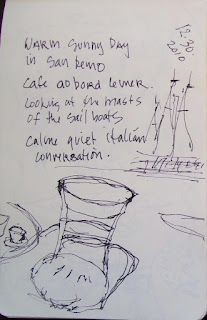 WARM SUNNY DAY
in SAN REMO
Cafe ao bord de mer.
Looking at the masts
of the sail boats
Calme quiet italian
conversation.
12.30.
2010